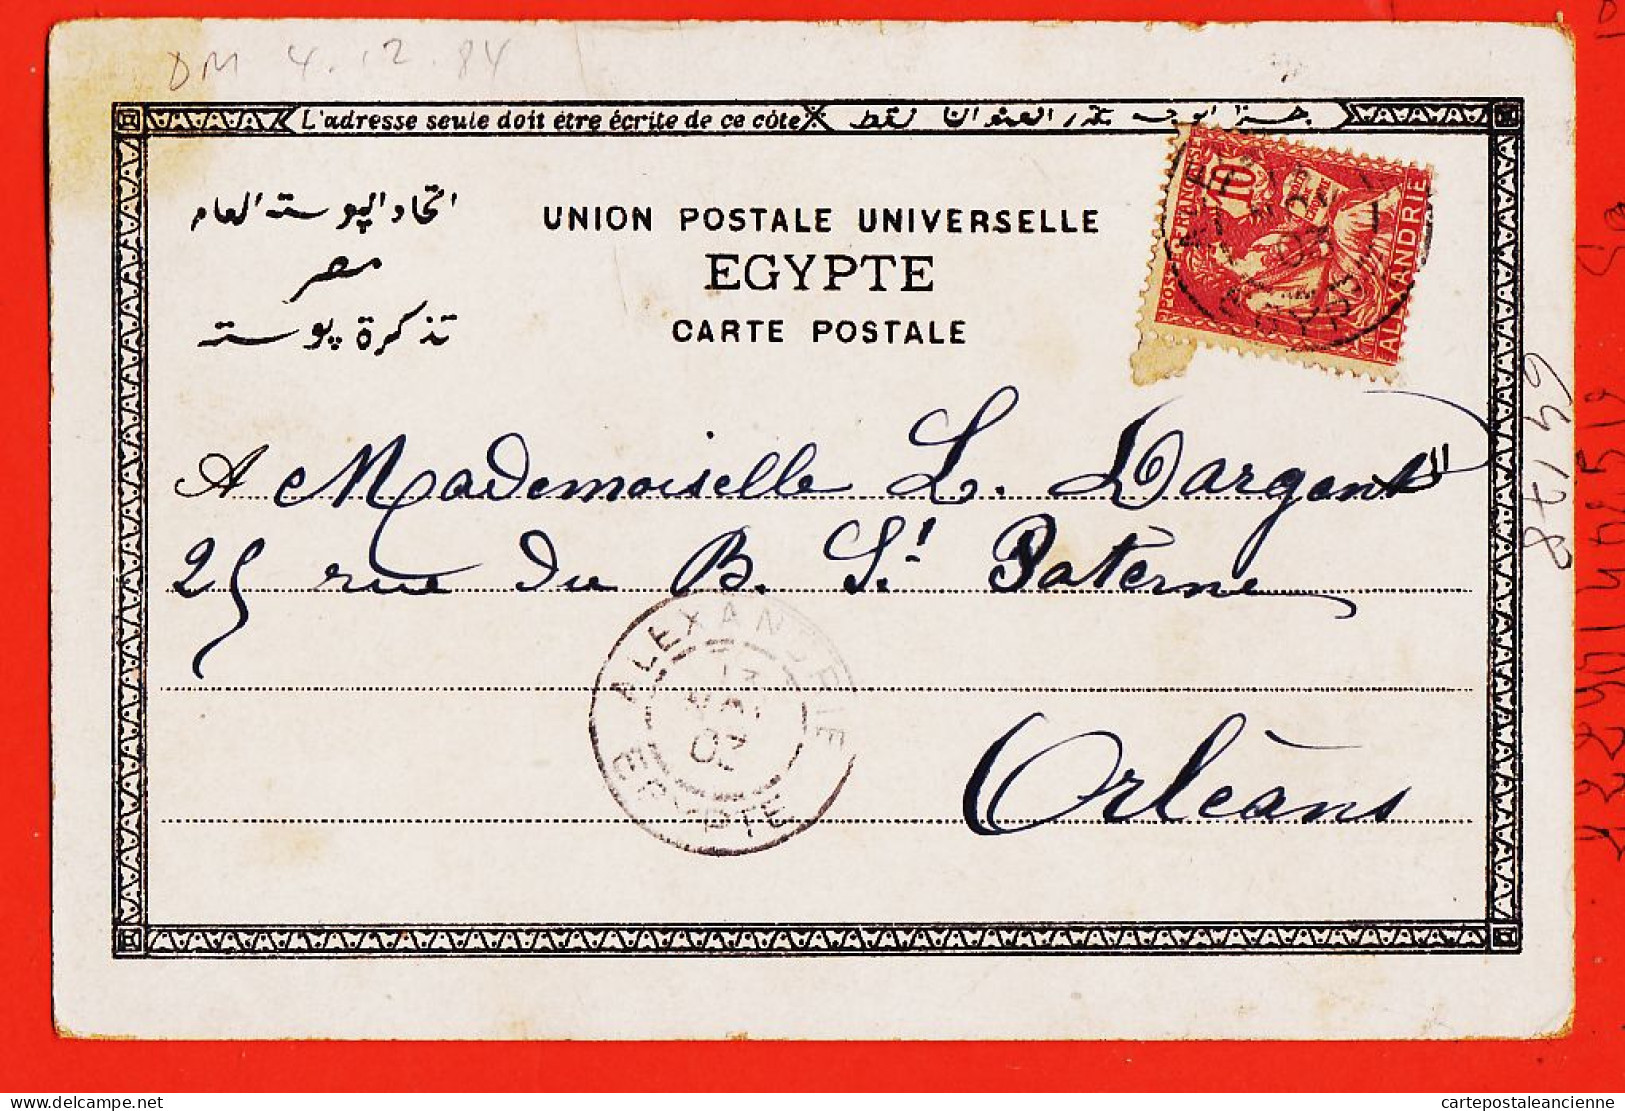 DM 4.12.84
L'adresse seule doit être écrite de ce côté
اتحاد البوسته العام
مصر
تذكرة بوسته
UNION POSTALE UNIVERSELLE
EGYPTE
CARTE POSTALE
POSTE FRANÇAISE
10
ALEXANDRIE
A Mademoiselle L. Dargent
25 rue du B. St Paterne
Orléans
ALEXANDRIE
03
EGYPTE
delcampe.net
cartepostaleancienne